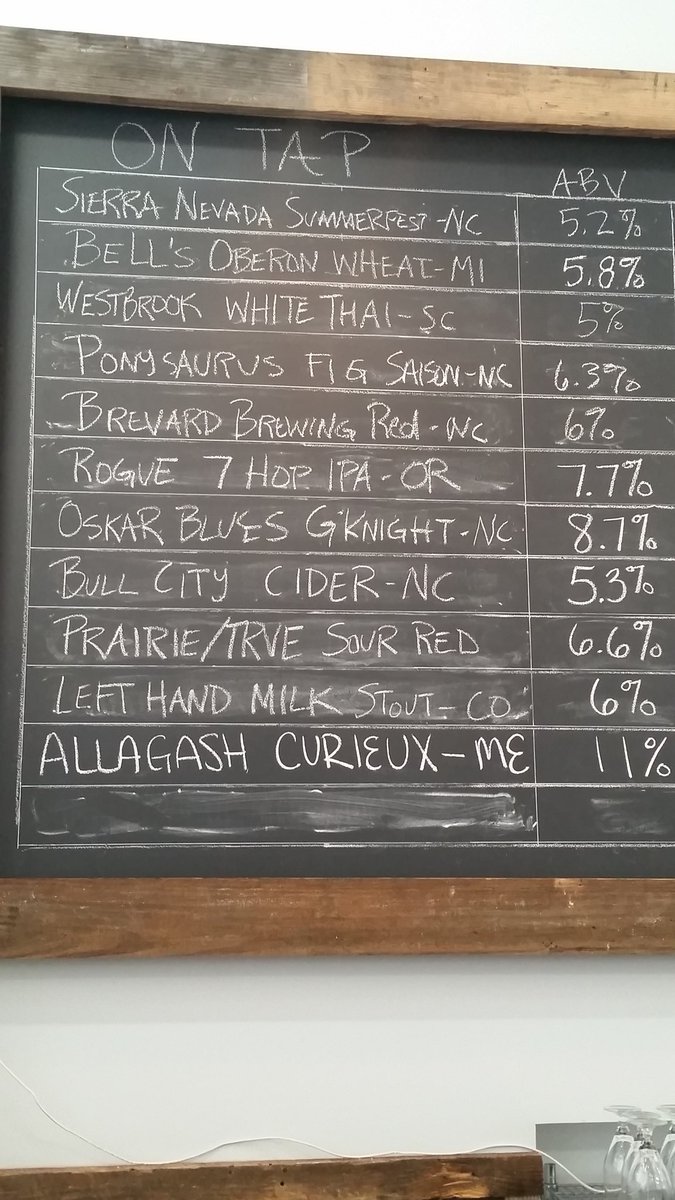 ON TAP
ABV
SIERRA NEVADA SUMMERFEST-NC 5.2%
BELL'S OBERON WHEAT-MI 5.8%
WESTBROOK WHITE THAI-SC 5%
PONYSAURUS FIG SAISON-NC 6.3%
BREVARD BREWING Red-NC 6%
ROGUE 7 HOP IPA-OR 7.7%
OSKAR BLUES G'KNIGHT-NC 8.7%
BULL CITY CIDER-NC 5.3%
PRAIRIE/TRVE SOUR RED 6.6%
LEFT HAND MILK STOUT-CO 6%
ALLAGASH CURIEUX-ME 11%